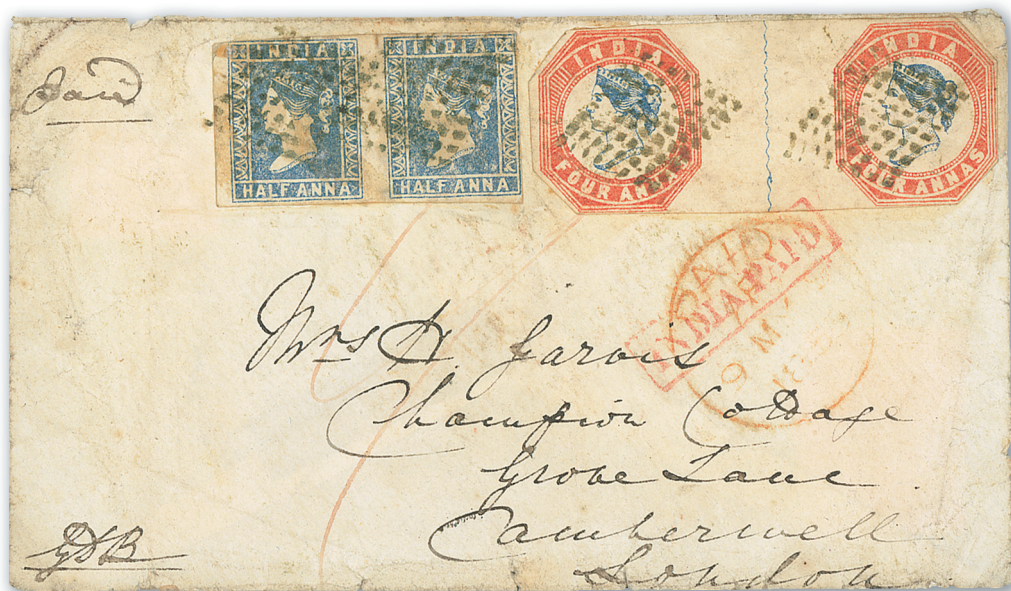 Paid
INDIA
HALF ANNA
INDIA
HALF ANNA
INDIA
FOUR ANNAS
INDIA
FOUR ANNAS
INDIA PAID
PAID
9 M
18
Mrs H. Jarvis
Champion Cottage
Grove Lane
Camberwell
London